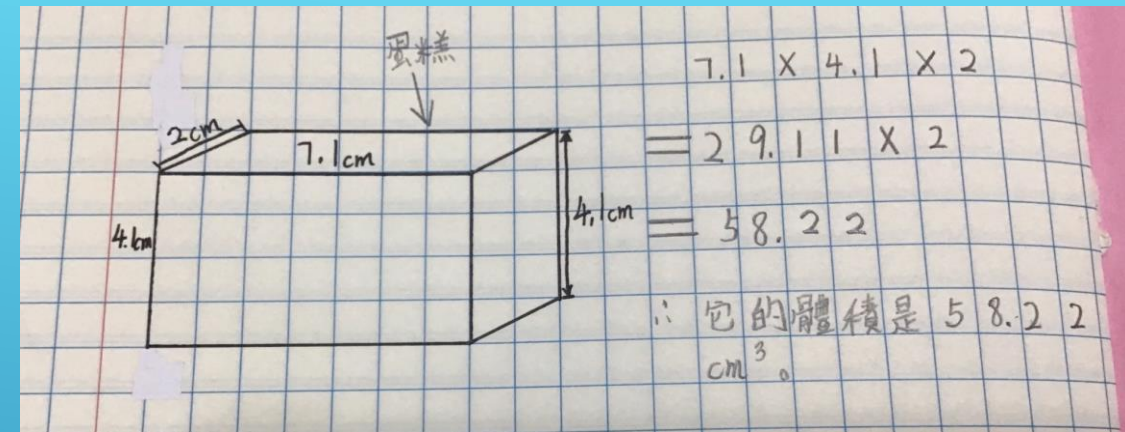 蛋糕
2cm
7.1cm
4.1cm
4.1cm
7.1 × 4.1 × 2
= 29.11 × 2
= 58.22
∴ 它的體積是 58.22
cm³。